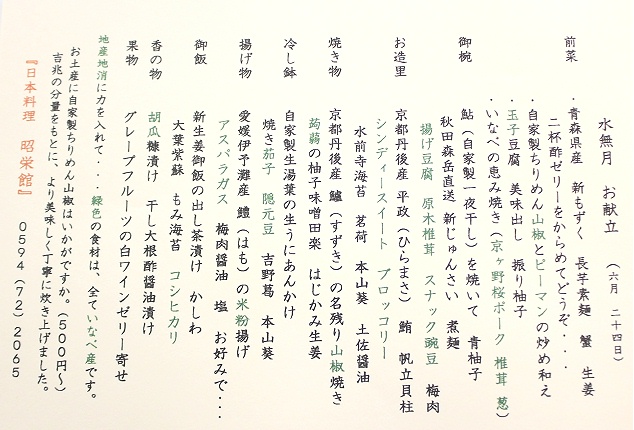 水無月　お献立　（六月　二十四日）
前菜　・青森県産　新もずく　長芋素麺　蟹　生姜
二杯酢ゼリーをからめてどうぞ・・・
・自家製ちりめん山椒とピーマンの炒め和え
・玉子豆腐　美味出し　振り柚子
・いなべの恵み焼き（京ヶ野桜ポーク　椎茸　葱）
御椀　鮎（自家製一夜干し）を焼いて　青柚子
秋田森岳直送　新じゅんさい　煮麺
揚げ豆腐　原木椎茸　スナック豌豆　梅肉
お造里　京都丹後産　平政（ひらまさ）　鮪　帆立貝柱
シンディースイート　ブロッコリー
水前寺海苔　茗荷　本山葵　土佐醤油
焼き物　京都丹後産　鱸（すずき）の名残り山椒焼き
蒟蒻の柚子味噌田楽　はじかみ生姜
冷し鉢　自家製生湯葉の生うにあんかけ
焼き茄子　隠元豆　吉野葛　本山葵
揚げ物　愛媛伊予灘産　鱧（はも）の米粉揚げ
アスパラガス　梅肉醤油　塩　お好みで・・・
御飯　新生姜御飯の出し茶漬け　かしわ
大葉紫蘇　もみ海苔　コシヒカリ
香の物　胡瓜糠漬け　干し大根酢醤油漬け
果物　グレープフルーツの白ワインゼリー寄せ
地産地消に力を入れて・・緑色の食材は、全ていなべ産です。
お土産に自家製ちりめん山椒はいかがですか。（500円～）
吉兆の分量をもとに、より美味しく丁寧に炊き上げました。
『日本料理　昭栄館』　0594（72）2065